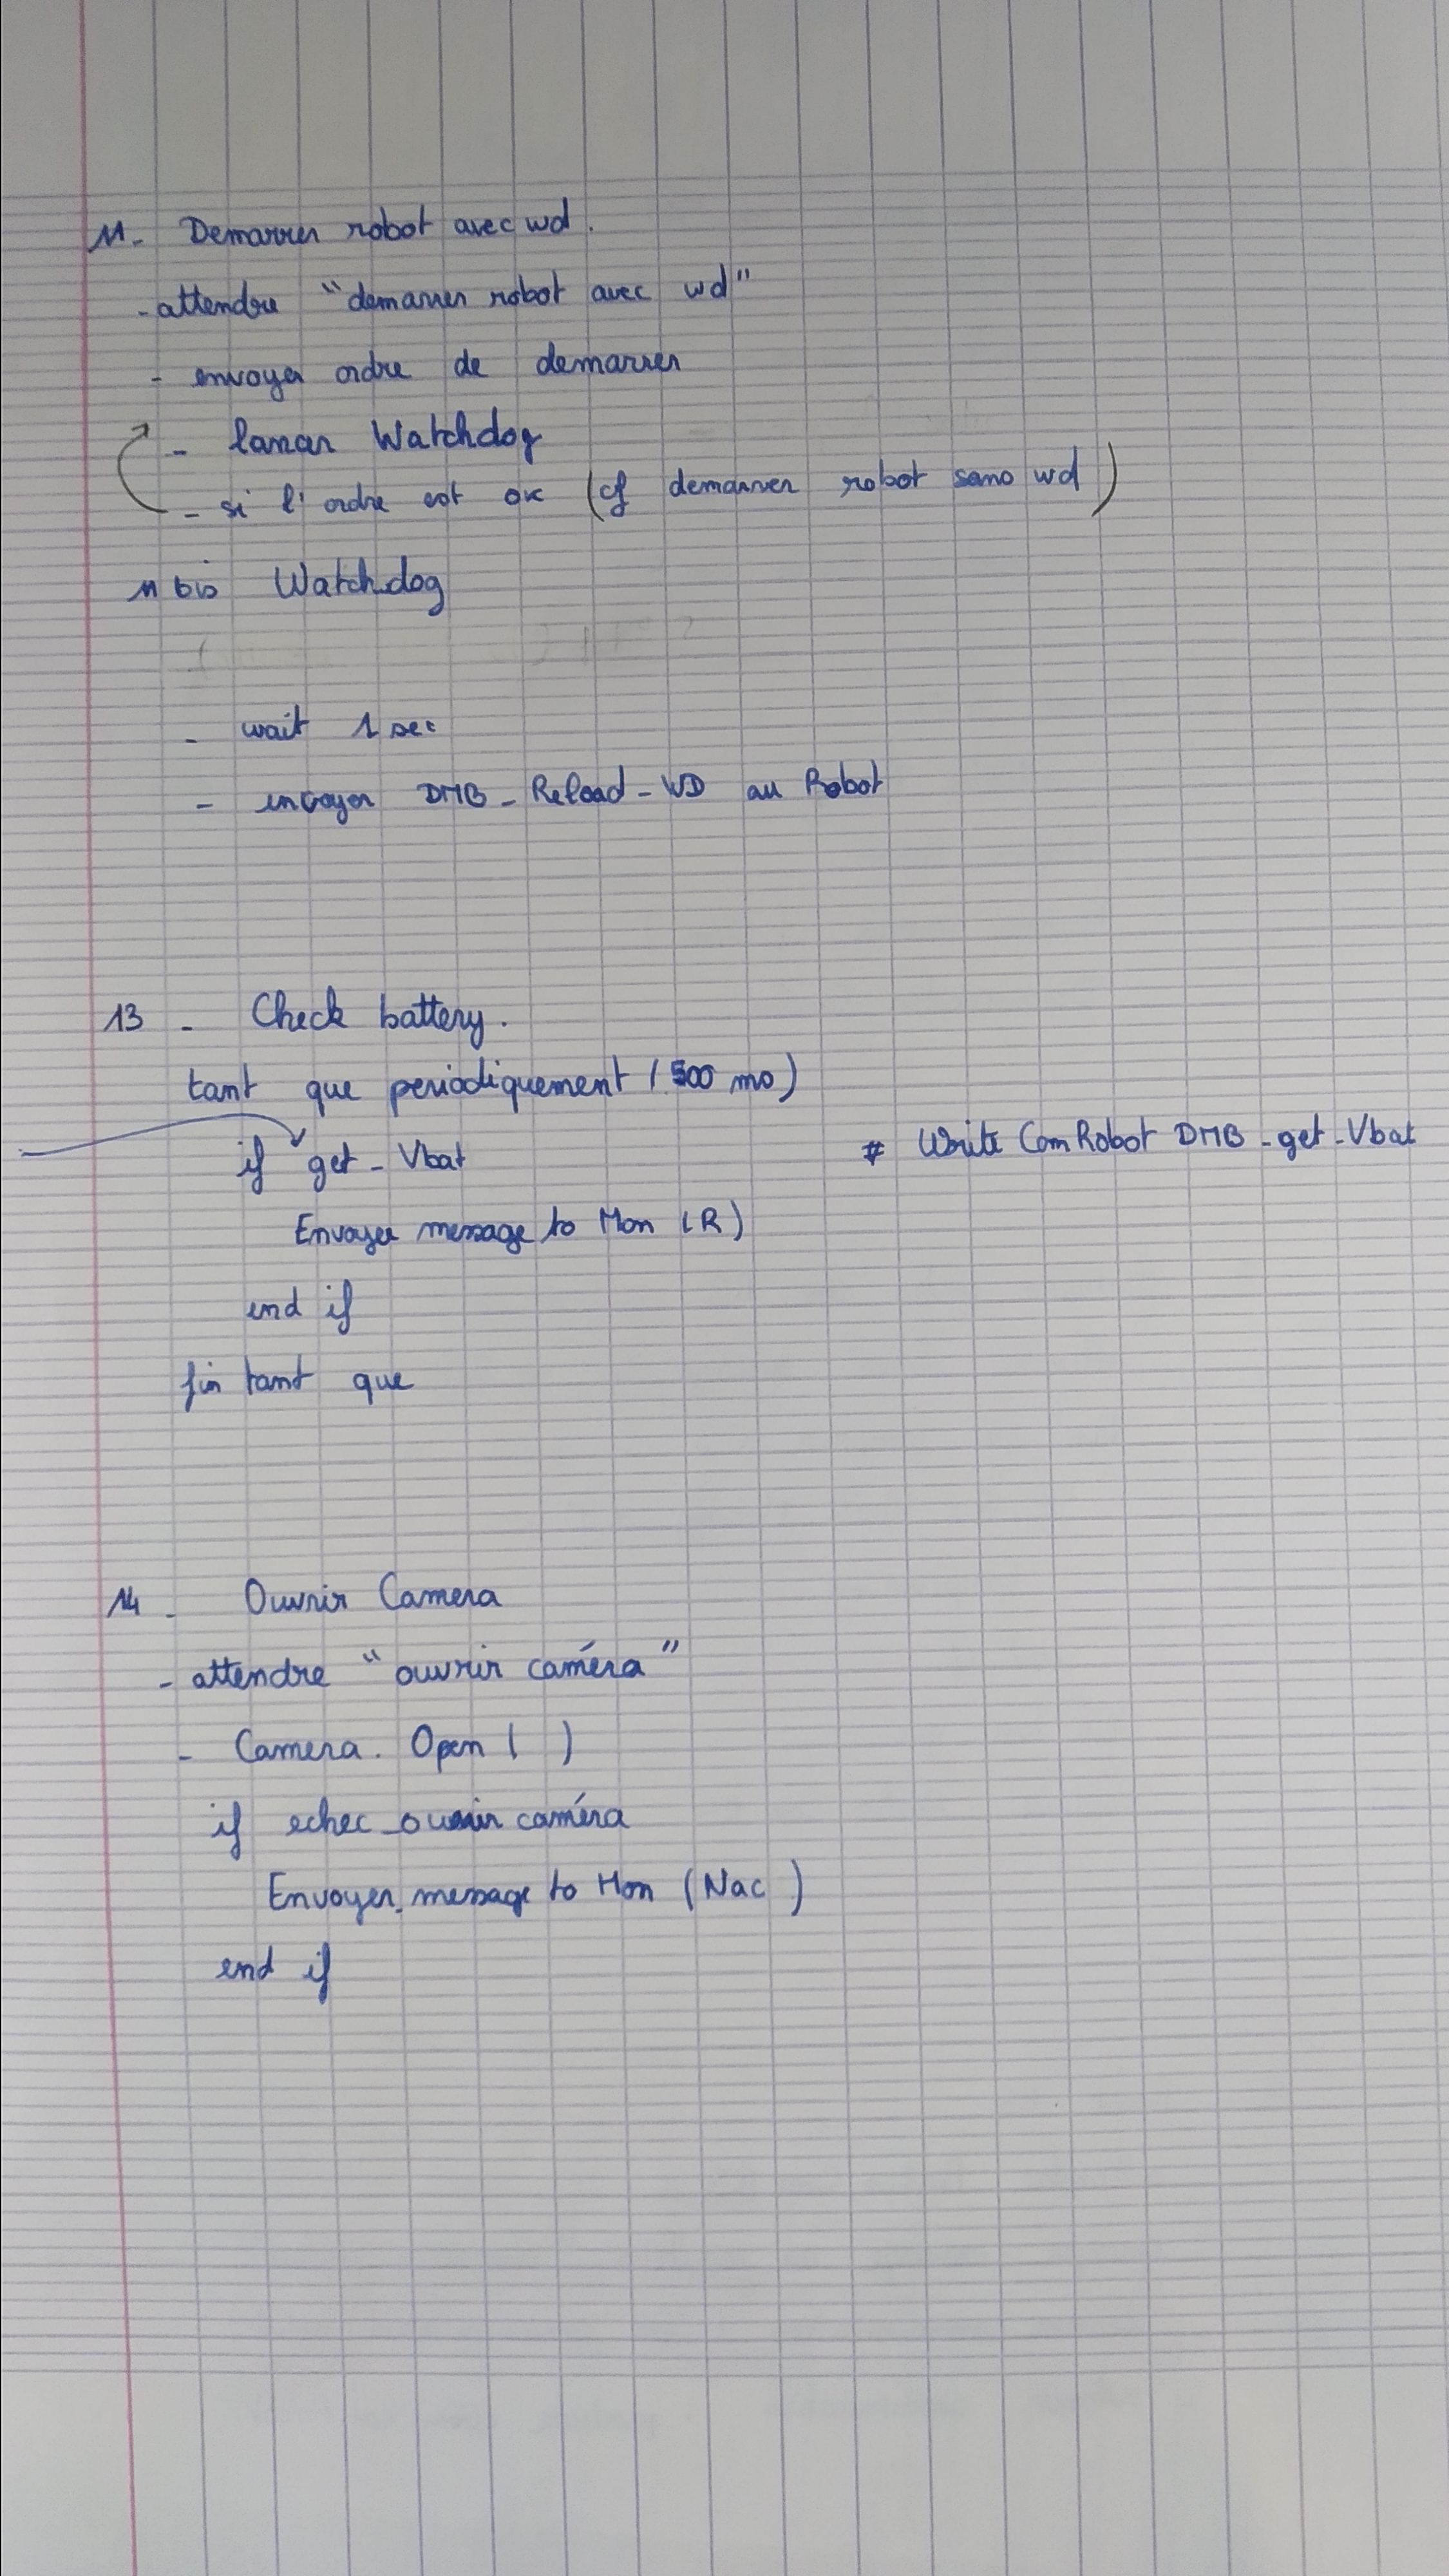 11- Demarrer robot avec wd.
- attendre "demarrer robot avec wd"
- envoyer ordre de demarrer
- lancer Watchdog
- si l'ordre est ok (cf demarrer robot sans wd)
11 bis Watchdog
- wait 1 sec
- envoyer DMB_Reload_WD au Robot
13 - Check battery.
tant que periodiquement (500 ms)
if get_Vbat # Write ComRobot DMB_get_Vbat
Envoyer message to Mon (R)
end if
fin tant que
14 - Ouvrir Camera
- attendre "ouvrir caméra"
- Camera. Open ( )
if echec_ouvrir caméra
Envoyer message to Mon (Nac )
end if